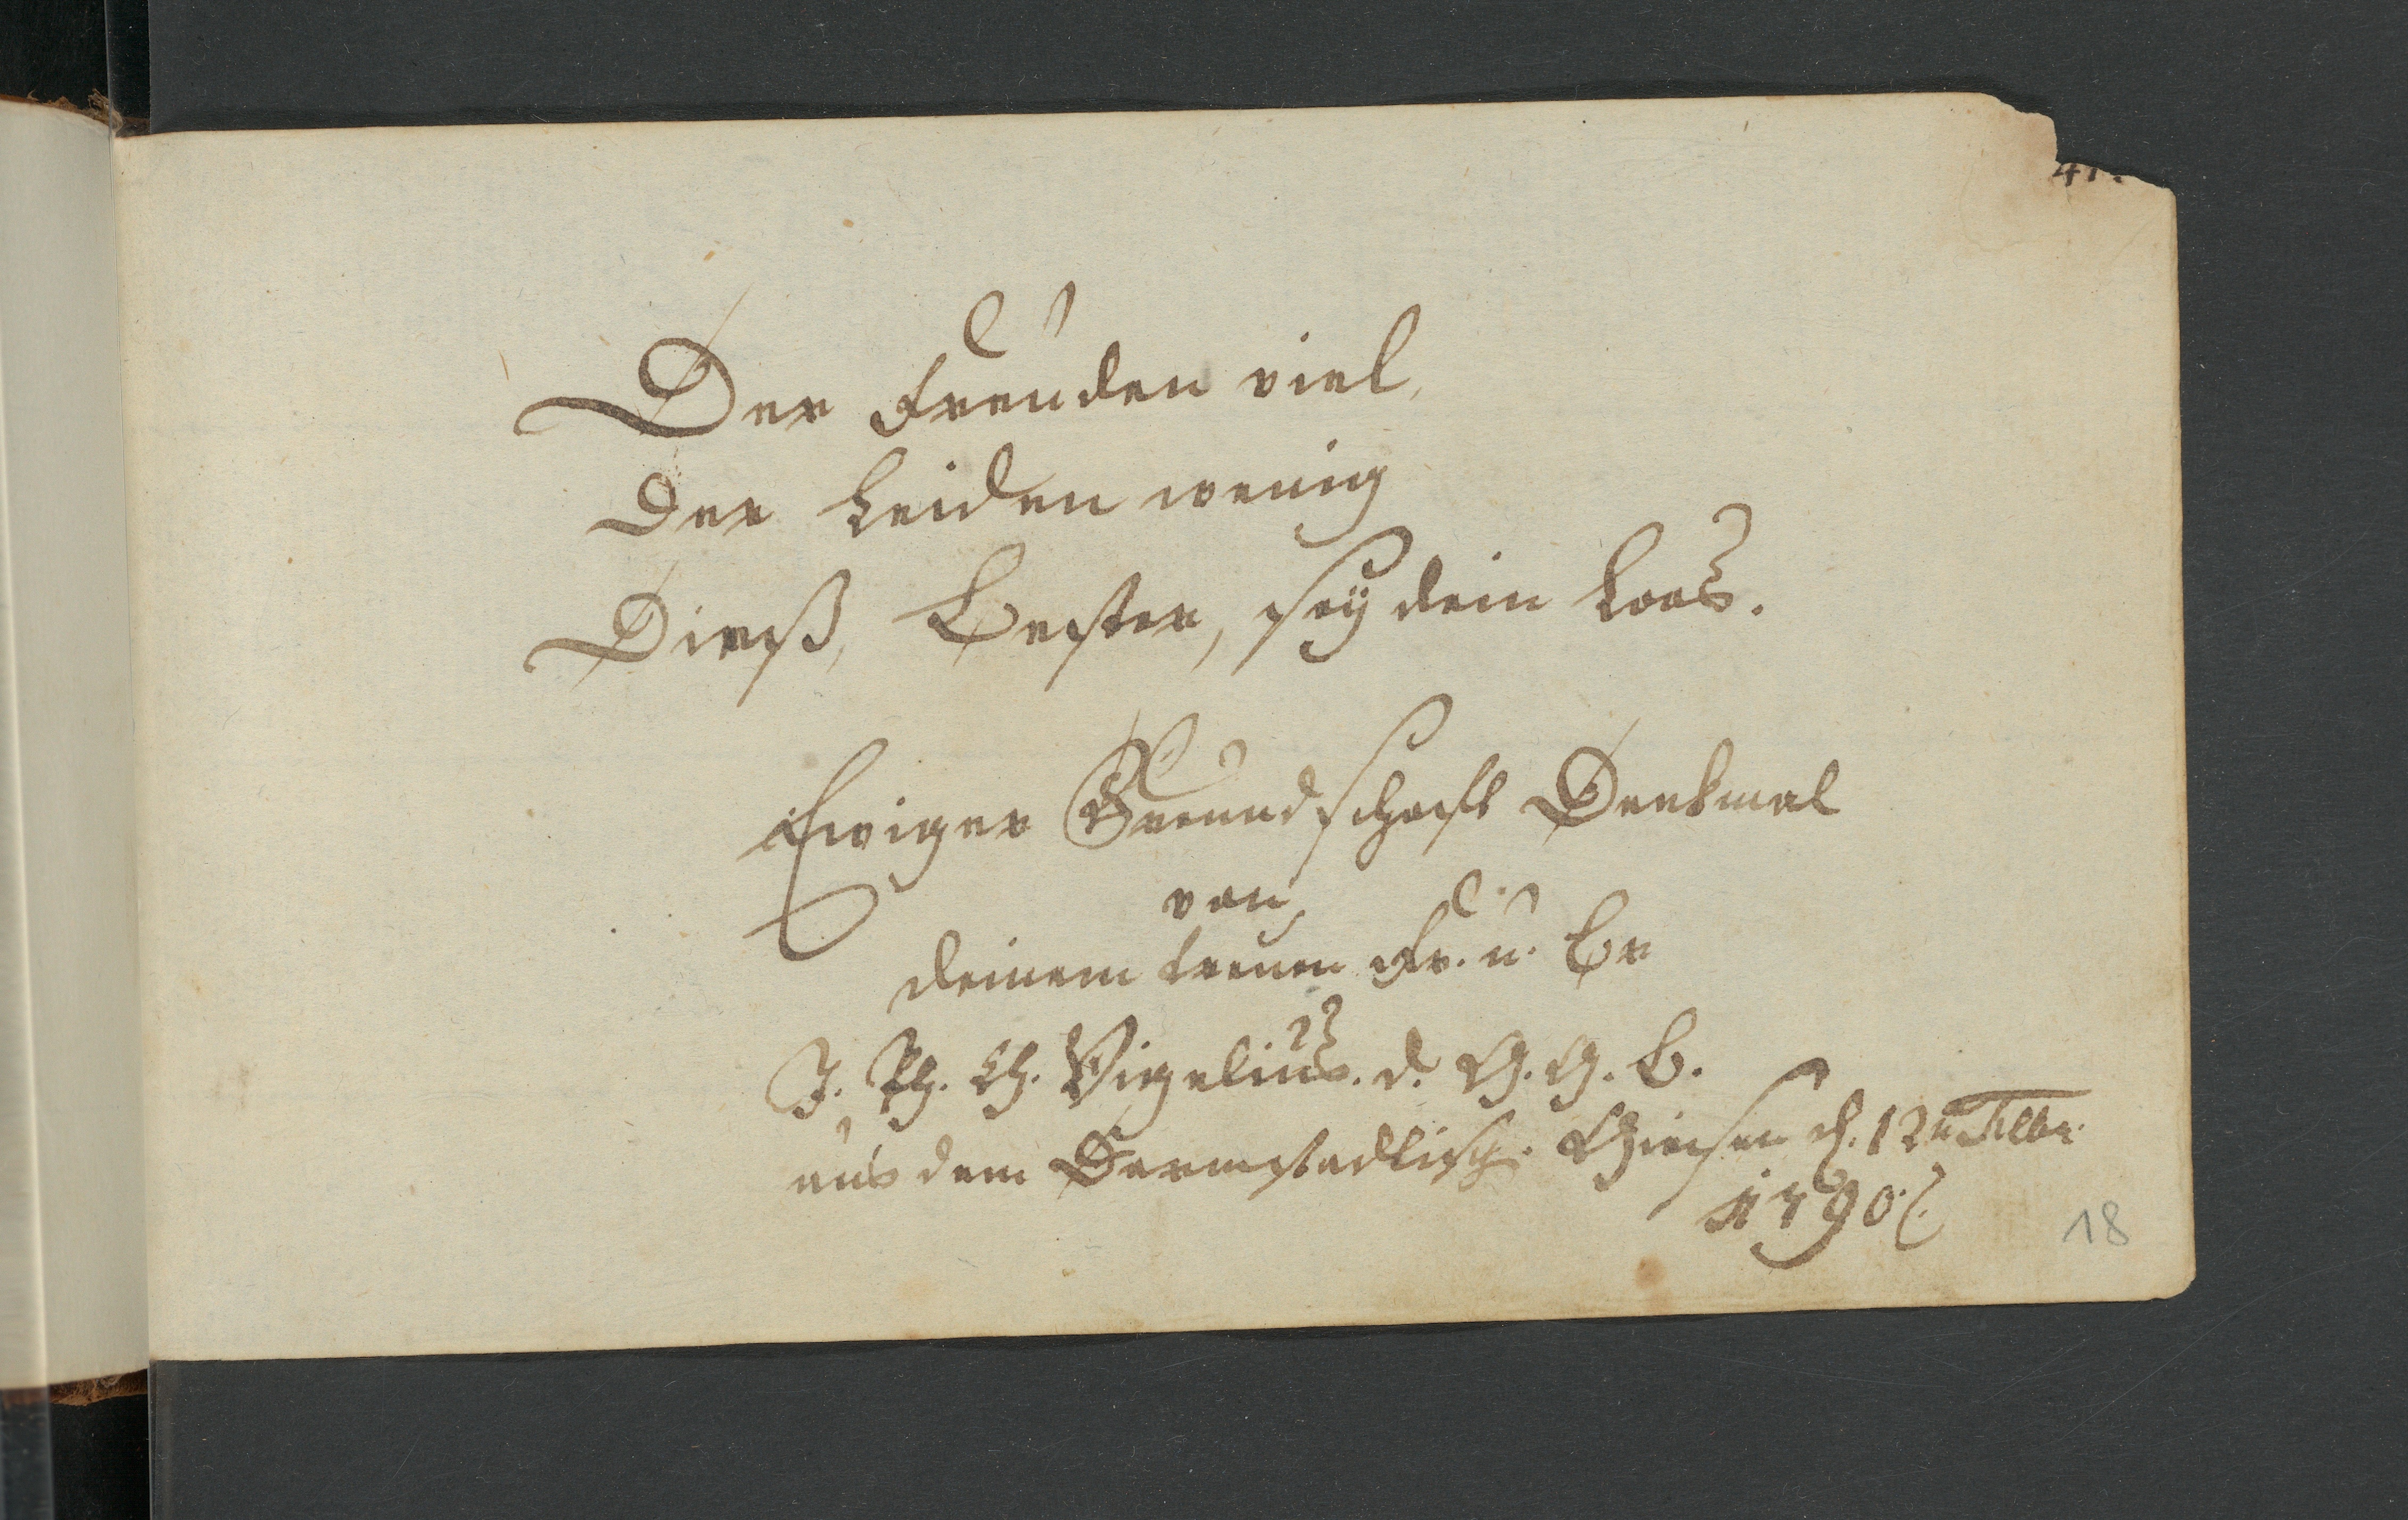 41.
Der Freuden viel,
Der Leiden wenig
Dieß, Bester, sey dein Loos.
Ewiger Freundschaft Denkmal
von
deinem treuen Fr. u. Br
J. Ph. Ch. Vigelius. d. G. G. B.
aus dem Darmstadtisch. Giesen d. 12n
1790.
18